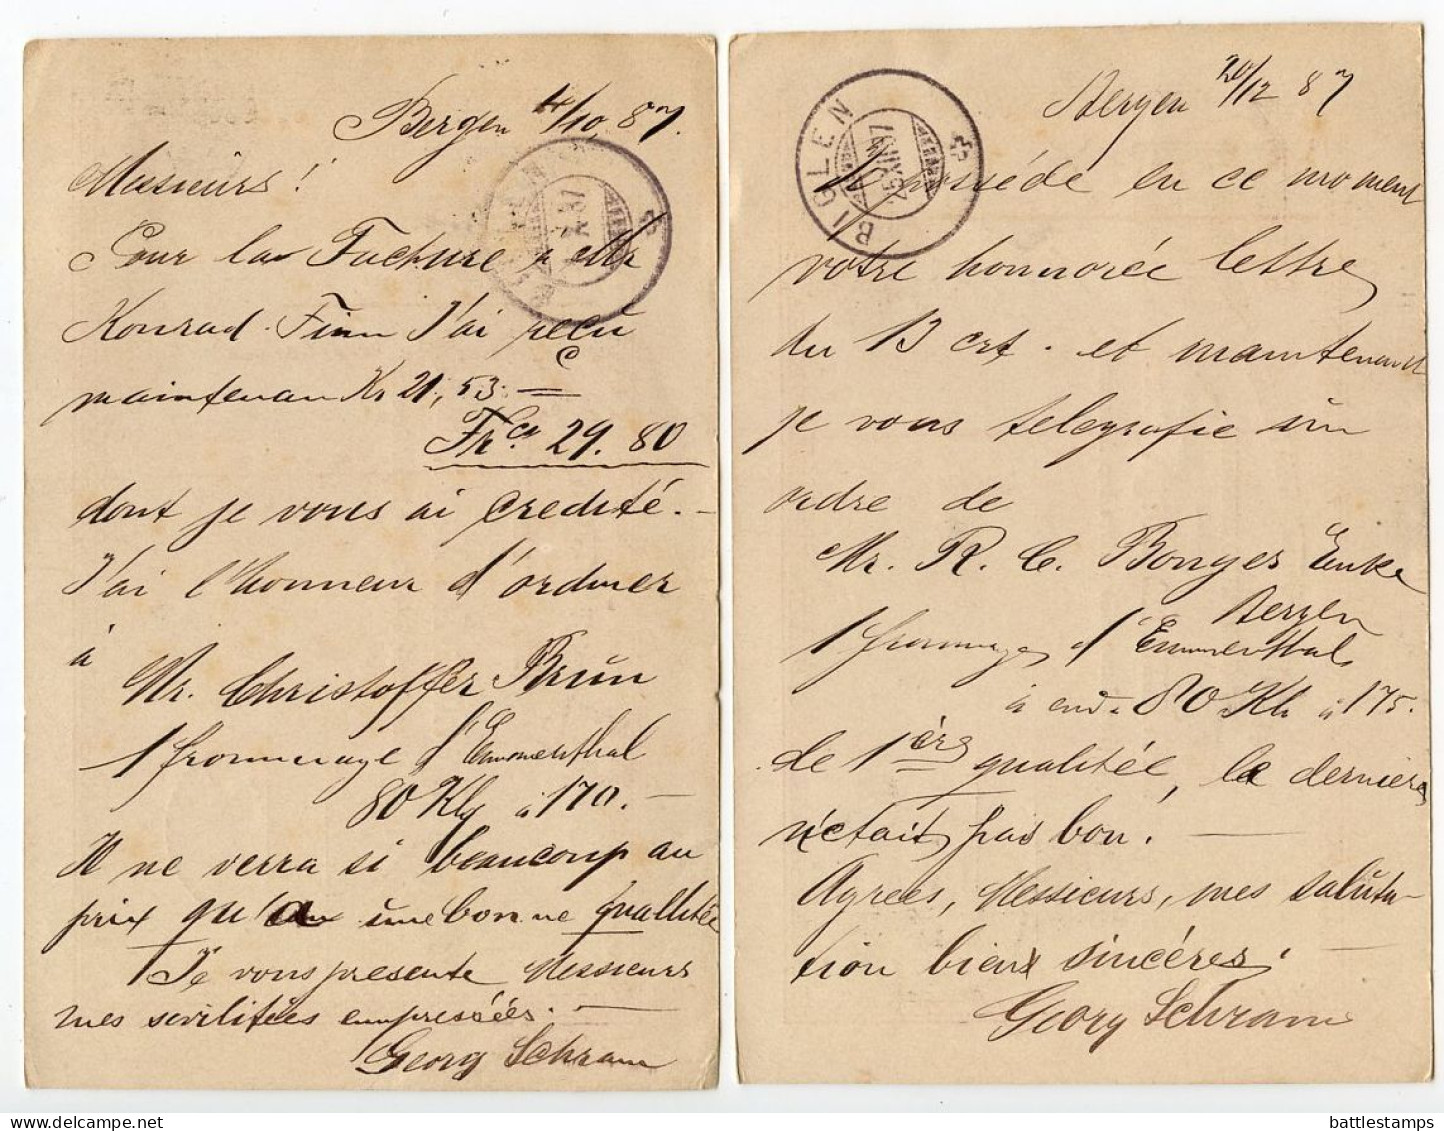 Bergen 4/10, 87.
Messieurs!
Pour la Facture
Konrad Finn J'ai reçu
maintenan Kr 21,,53.
Frcs 29.80
dont je vous ai credité.-
J'ai l'honneur d'ordiner
à
Mr. Christoffer Brün
1 frommage d'Emmenthal
80 Klg à 170.-
Il ne verra si beaucoup au
prix qu'a üne bonne quallitée
Je vous presente Messieurs
mes sivilitées empressées.
Georg Schram
BIGLEN
25.XII.87
Bergen 20/12 87
possède en ce moment
votre honnorée lettre
du 13 crt. et maintenant
je vous telegrafie ün
ordre de
Mr. R. C. Bonges Enke
Bergen
1 frommage d'Emmenthal
à env. 80 Klg à 175.
de 1ère qualitée, la derniere
n'etait pas bon.
Agrees, Messieurs, mes salüta-
tion bien sincéres.
Georg Schram
battlestamps